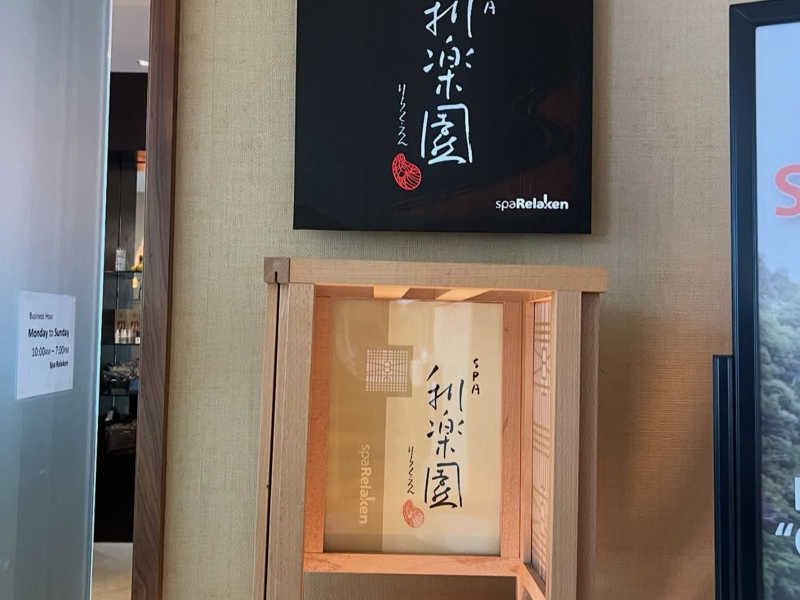 SPA
利楽園
りらくえん
spaRelaken
Business Hour
Monday to Sunday
10:00AM – 7:00PM
Spa Relaken
SPA
利楽園
りらくえん
spaRelaken
S